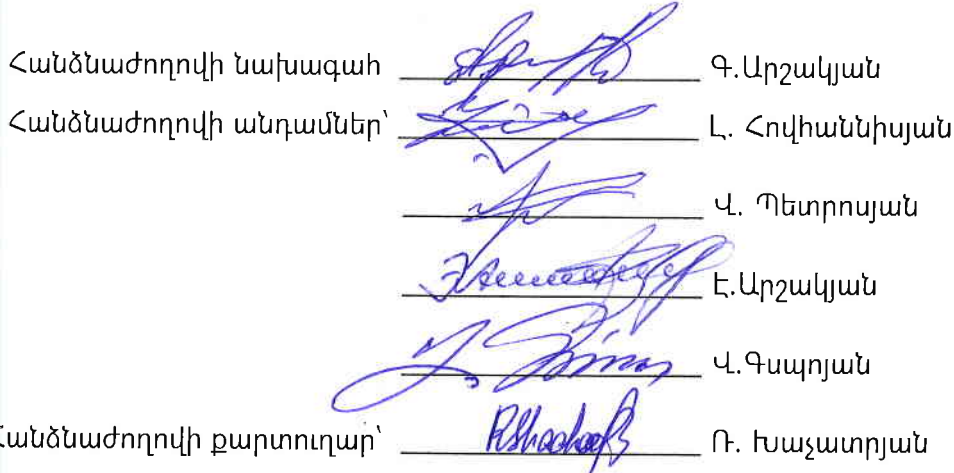 Հանձնաժողովի նախագահ Գ.Արշակյան
Հանձնաժողովի անդամներ՝ Լ. Հովհաննիսյան
Վ. Պետրոսյան
Է.Արշակյան
Վ.Գսպոյան
Հանձնաժողովի քարտուղար՝ Ռ. Խաչատրյան